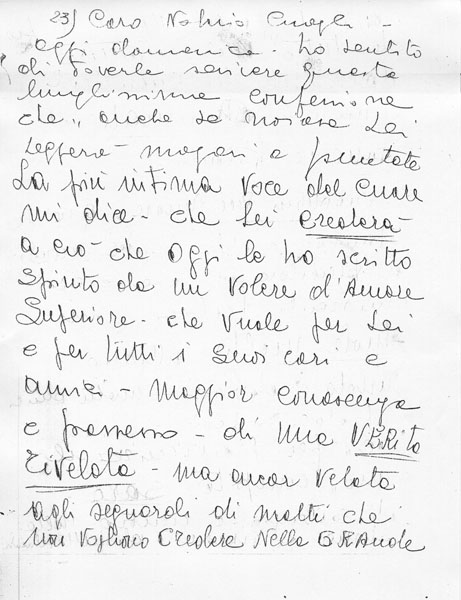 23) Caro Notaio Cuoghi -
oggi domenica - ho sentito
di doverle scrivere questa
lunghissima confessione
che, anche se noiosa Lei
leggerà - magari a puntate
La più intima voce del cuore
mi dice - che Lei Crederà
a ciò che oggi le ho scritto
spinto da un Volere d'Amore
Superiore - che Vuole per Lei
e per tutti i suoi cari e
amici - maggior conoscenza
e possesso - di una VERità
riVelata - ma ancor Velata
agli sguardi di molti che
non Vogliono Credere Nella GRANde